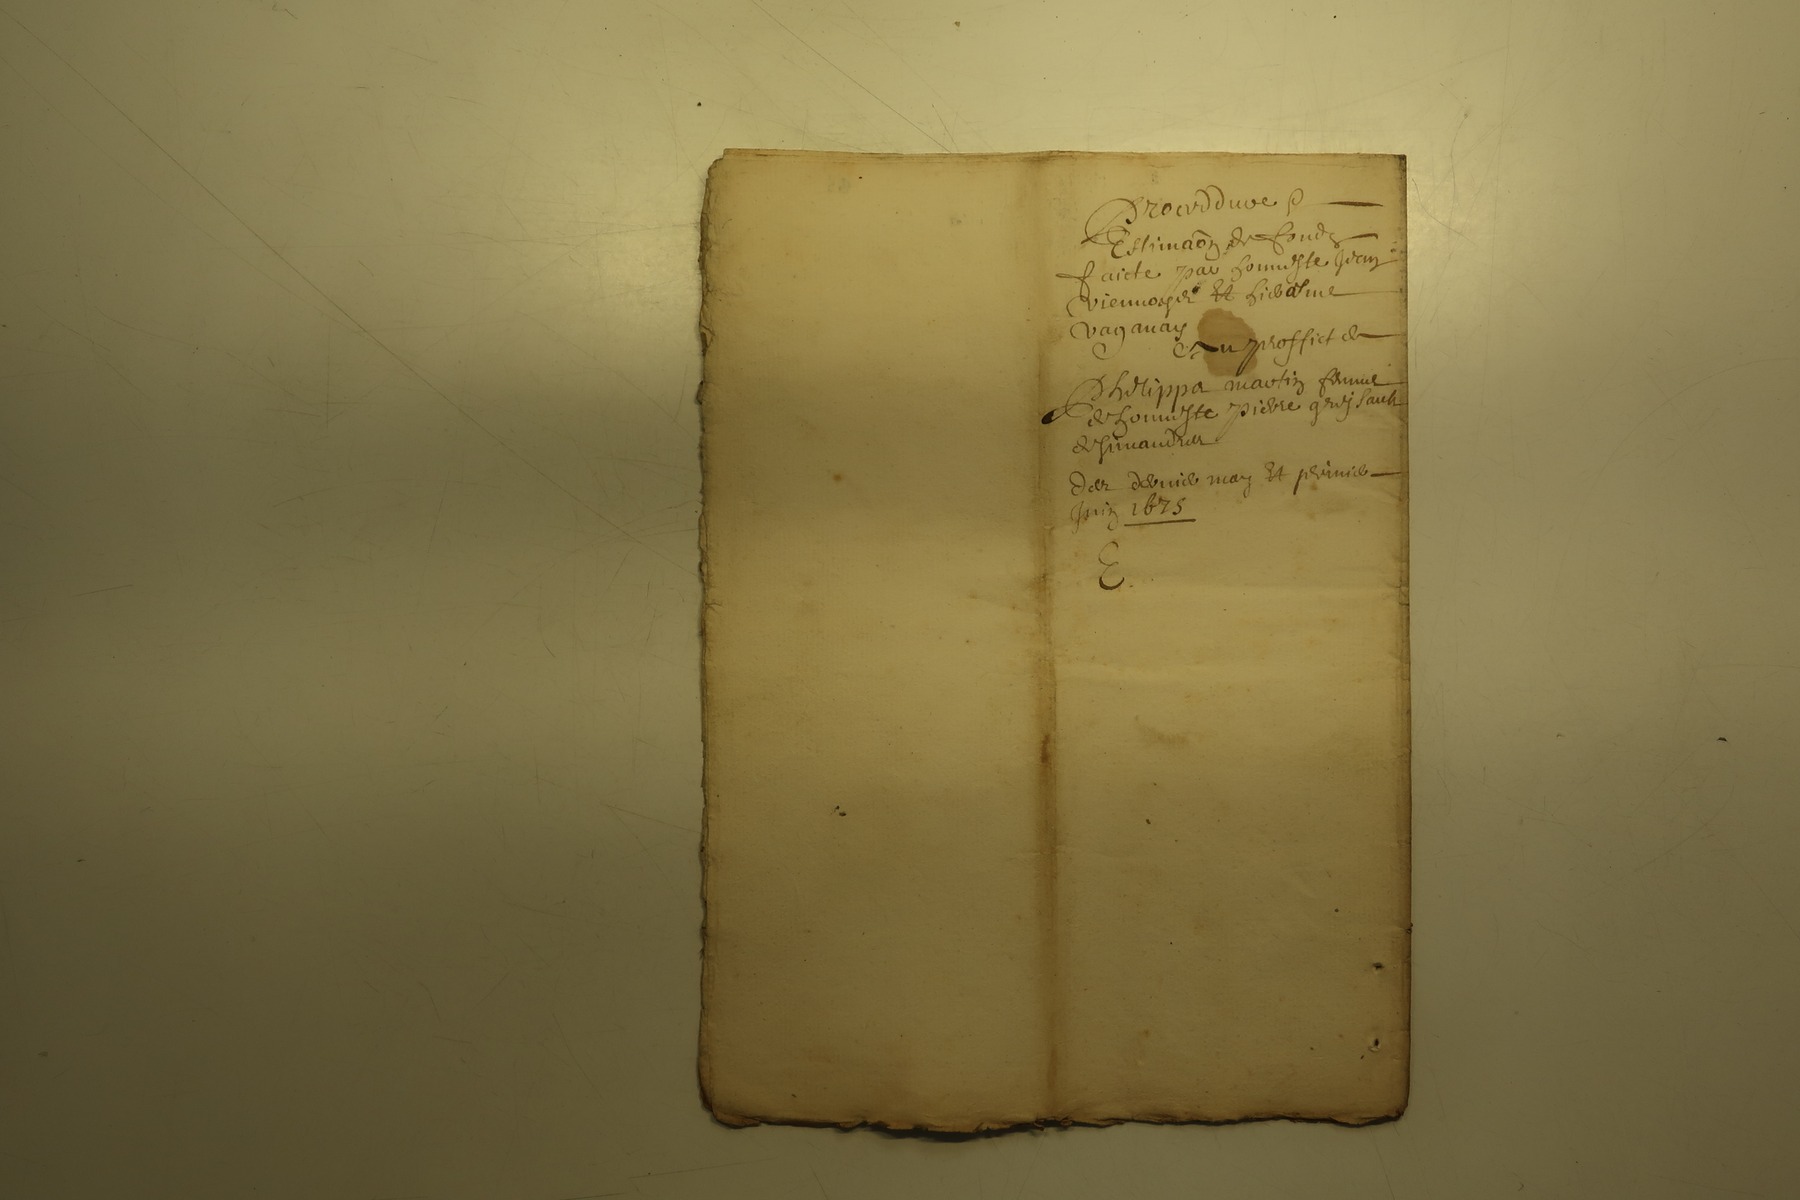 Proceddure &
Estimaõn de fondz
faicte par honneste Jean
et hierosme
Vaganay
Au proffict de
Phelippa martin femme
de honneste pierre
de
des dernier may et premier
Juin 1675
E.